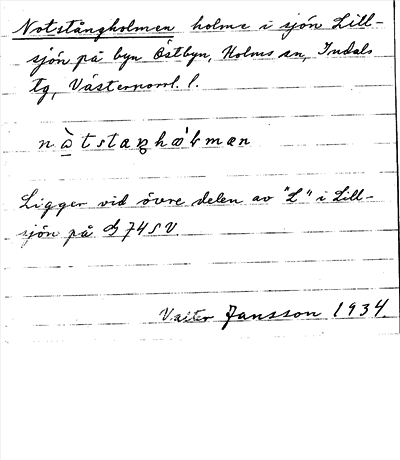 Notstångholmen holme i sjön Lill-
sjön på byn Östbyn, Holms sn, Indals
tg, Västernorrl. l.
n ὼ t s t a ŋ h ώ ɫ m æ n
Ligger vid övre delen av "L" i Lill-
sjön på G 74 SV.
Valter Jansson 1934.